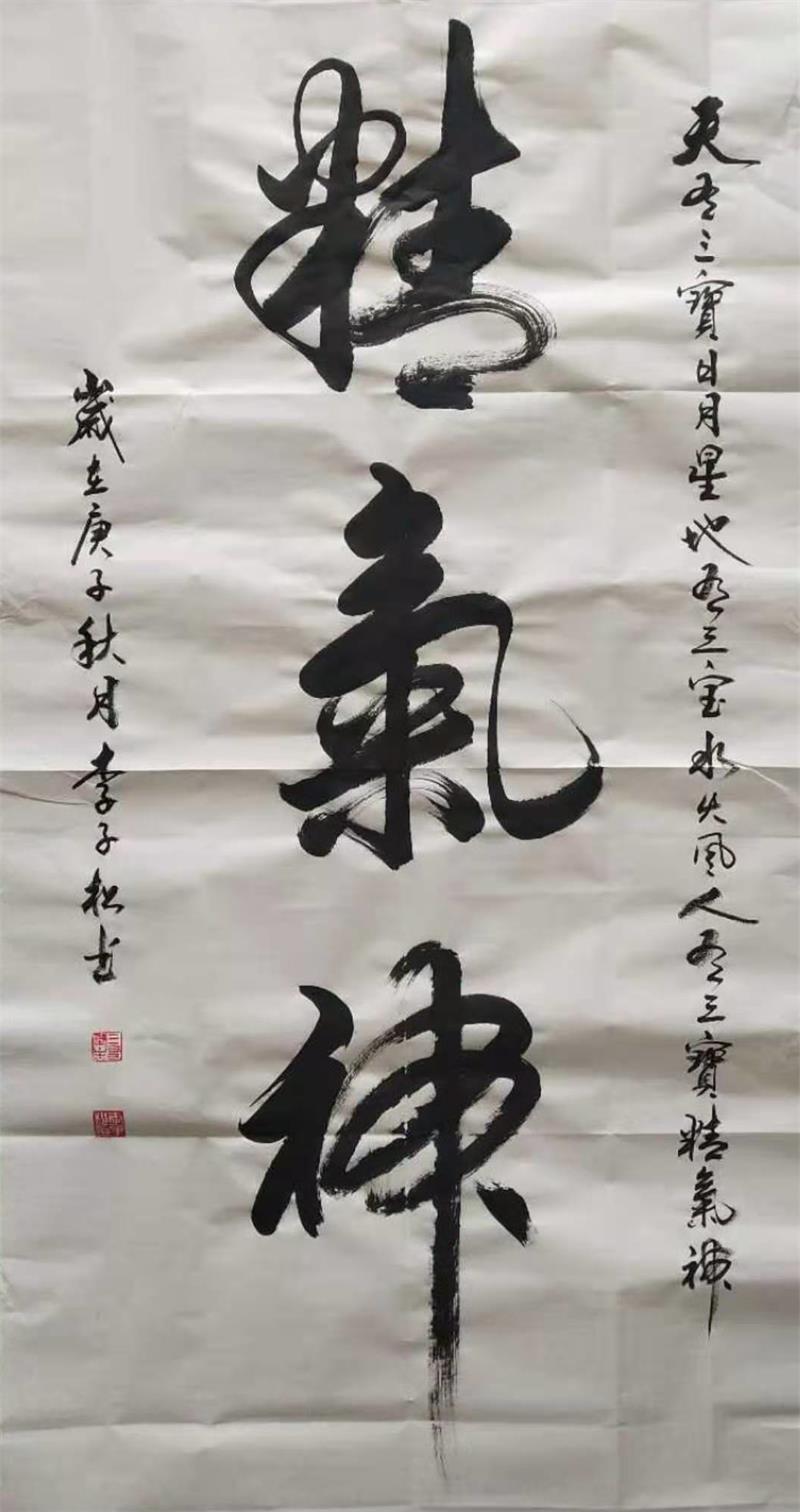 天有三寶日月星地有三宝水火風人有三寶精氣神
精氣神
歲在庚子秋月李子松书